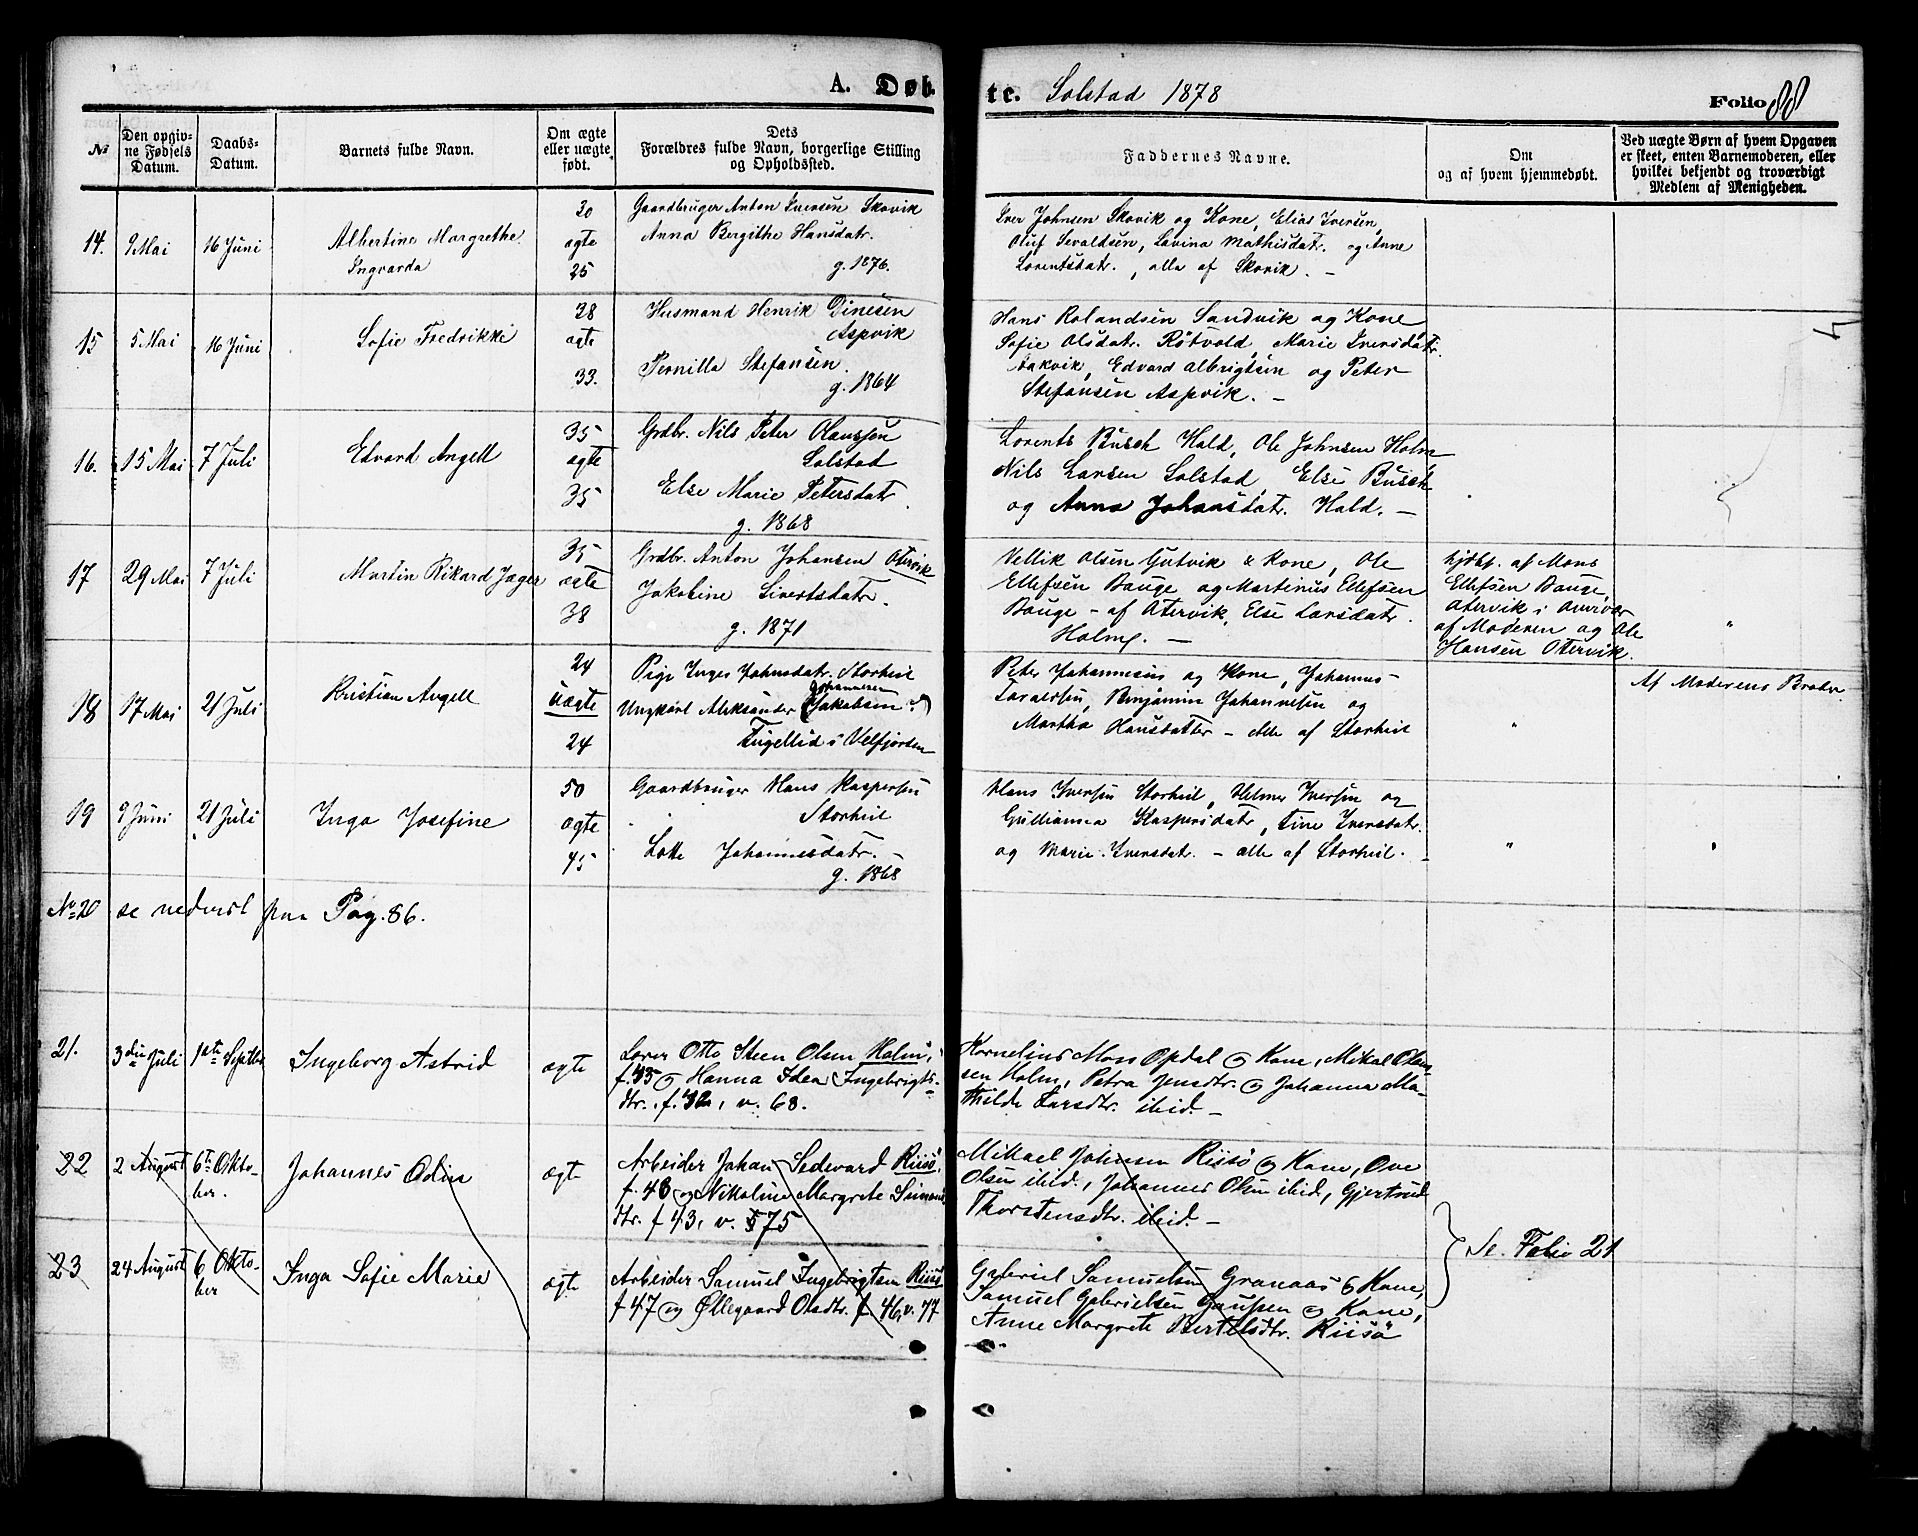 A. Døb-
te. Solstad 1878
Folio 88
No
Den opgiv-
ne Fødsels
Datum.
Daabs-
Datum.
Barnets fulde Navn.
Om ægte
eller uægte
født.
Dets
Forældres fulde Navn, borgerlige Stilling
og Opholdssted.
Faddernes Navne.
Om
og af hvem hjemmedøbt.
Ved uægte Børn af hvem Opgaven
er skeet, enten Barnemoderen, eller
hvilket bekjendt og troværdigt
Medlem af Menigheden.
14. 9 Mai 16 Juni
Albertine Margrethe
Ingvarda
30
ægte
25
Gaardbruger Anton Iversen Skovik
Anna Bergithe Hansdatr.
g. 1876.
Iver Johnsen Skovik og Kone, Elias Iversen,
Oluf Sevaldsen, Lavina Mathisdatr. og Anne
Lorentsdatr., alle af Skovik. —
15 5 Mai 16 Juni
Sofie Fredrikke
38
ægte
33.
Husmand Henrik Dinesen
Aspvik
Pernilla Stefansen.
g. 1864
Hans Rolandsen Sandvik og Kone
Sofie Olsdatr. Røtvold, Marie Iversdatr.
Edvard Albrigtsen og Peter
Stefansen Aspvik. —
16. 15 Mai 7 Juli
Edvard Angell
35
ægte
35
Grdbr. Nils Peter Olaussen
Solstad
Else Marie Petersdatr.
g. 1868
Lorents Busch Hald, Ole Johnsen Holm
Nils Larsen Solstad, Else Busch
og Anna Johansdatr. Hald. —
17 29 Mai 7 Juli
Martin Rikard Jæger
35
ægte
38
Grdbr. Anton Johansen Otervik
Jakobine Sivertsdatr.
g. 1871
Vellik Olsen Gutvik & Kone, Ole
Ellefsen Bauge og Martinus Ellefsen
Bauge – af Otervik, Else Larsdatr.
Holm. —
hjdbt. af Mons
Ellefsen Bauge,
Otervik i
af Moderen og Ole
Hansen Otervik.
"
18 17 Mai 21 Juli
Kristian Angell
24
Uægte
24
Pige Inger Johnsdatr. Storheil
Johannesen
Ungkarl Aleksander (Jakobsen?)
i Velfjorden
Peter Johannesen og Kone, Johannes
Benjamin Johannesen og
Martha Hansdatter – alle af Storheil
"
Af Moderens Broder
19 9 Juni 21 Juli
Inga Josefine
50
ægte
45
Gaardbruger Hans Kaspersen
Storheil
Lotte Johannesdatr. —
g. 1868
Hans Iversen Storheil, Helmer Iversen og
Gullianna Kaspersdatr, Tine Iversdatr.
og Marie Iversdatr. – alle af Storheil. –
"
"
No 20 se nederst paa Pag. 86.
21. 3die Juli 1ste Septbr
Ingeborg Astrid
ægte
Lærer Otto Steen Olsen Holm,
f. 35 og Hanna Idea Ingebrigts-
dtr. f. 42, v. 68.
Kornelius Moss Opdal og Kone, Mikal Olau-
sen Holm, Petra Jensdtr. og Johanna Ma-
thilde Larsdtr. ibid. —
22 2 August 6te Okto-
ber.
Johannes Odin
ægte
Arbeider Johan Sedevard Riisö,
f. 48 og Nikoline Margrete Simons-
dtr. f 43, v. 75
Mikael Johnsen Riisö og Kone, Ove
Olsen ibid., Johannes Olsen ibid, Gjertrud
Thorstensdtr. ibid. —
23 24 August 6 Okto-
ber
Inga Sofie Marie
ægte
Arbeider Samuel Ingebrigtsen Riisö
f 47 og Øllegaard Olsdtr. f 46, v. 77
Gabriel Samuelsen Granaas og Kone,
Samuel Gabrielsen Gaupen og Kone,
Anne Margrete Bertelsdtr. Riisö
Se. Folio 21